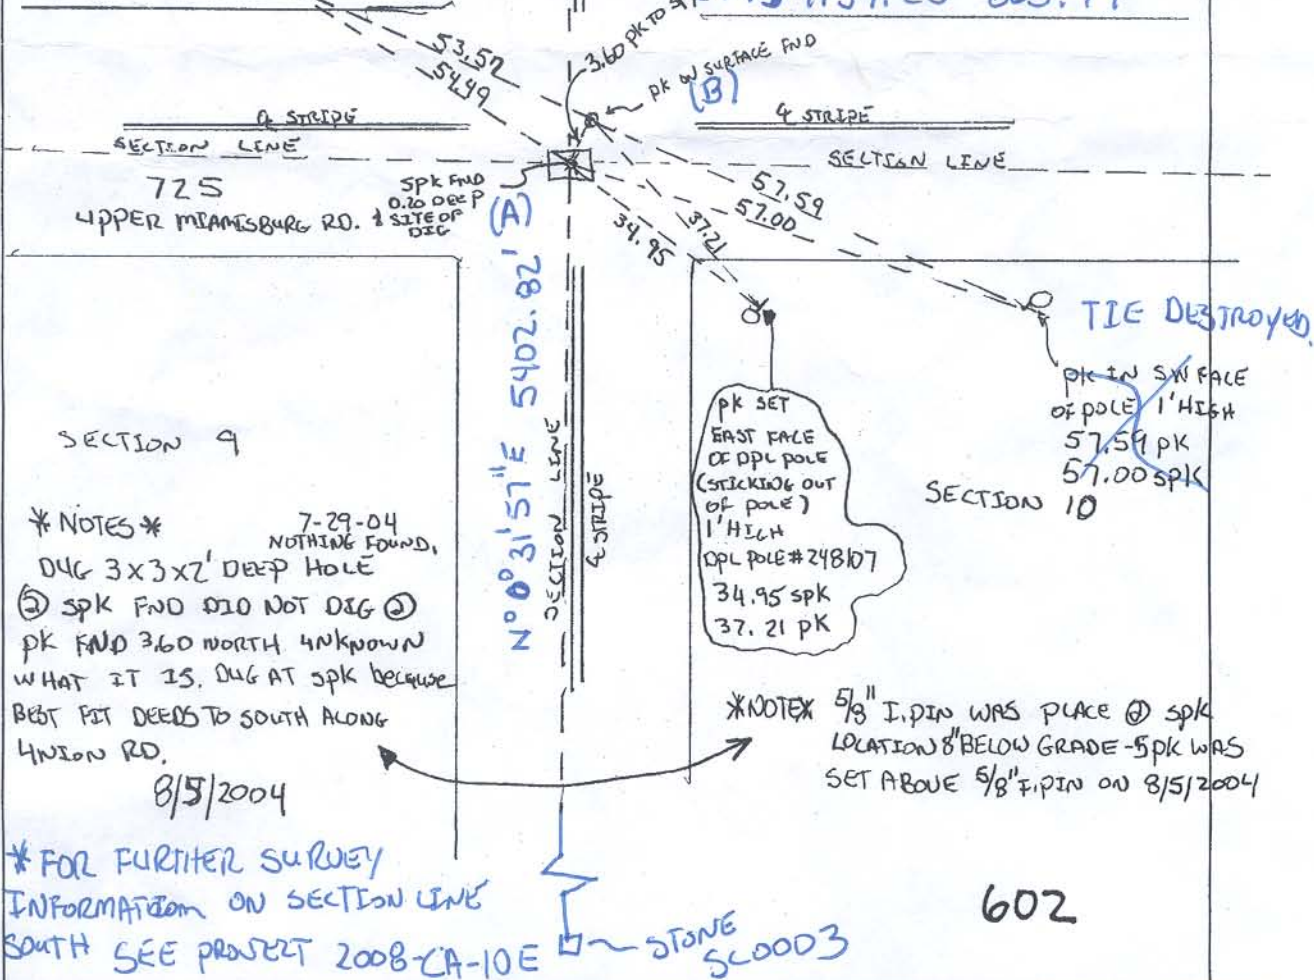 53.52
54.49
3.60 PK TO
PK ON SURFACE FND
(B)
℄ STRIPE
℄ STRIPE
SECTION LINE
SECTION LINE
725
UPPER MIAMISBURG RD.
SPK FND
0.20 DEEP
& SITE OF
DIG
(A)
57.59
57.00
37.21
34.95
N 0° 31' 57" E 5402.82'
SECTION LINE
℄ STRIPE
TIE DESTROYED.
PK IN SW FACE
OF POLE 1' HIGH
57.59 PK
57.00 SPK
PK SET
EAST FACE
OF DPL POLE
(STICKING OUT
OF POLE)
1' HIGH
DPL POLE # 248107
34.95 SPK
37.21 PK
SECTION 9
SECTION 10
*NOTES* 7-29-04
NOTHING FOUND.
DUG 3x3x2' DEEP HOLE
@ SPK FND DID NOT DIG @
PK FND 3.60 NORTH UNKNOWN
WHAT IT IS. DUG AT SPK because
BEST FIT DEEDS TO SOUTH ALONG
UNION RD.
8/5/2004
*NOTE* 5/8" I.PIN WAS PLACE @ SPK
LOCATION 8" BELOW GRADE - SPK WAS
SET ABOVE 5/8" I.PIN ON 8/5/2004
* FOR FURTHER SURVEY
INFORMATION ON SECTION LINE
SOUTH SEE PROJECT 2008-CA-10E
STONE
SC0003
602